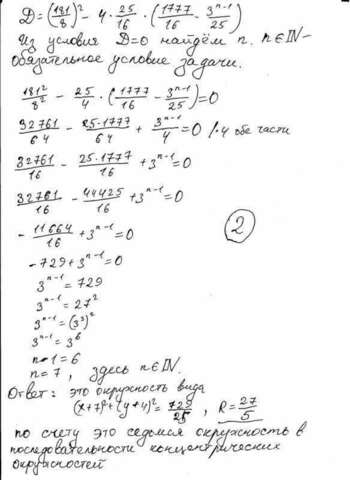 D=(181/8)² - 4·25/16·(1777/16 - 3ⁿ⁻¹/25)
Из условия D=0 найдём n. n∈ℕ-
обязательное условие задачи.
181²/8² - 25/4·(1777/16 - 3ⁿ⁻¹/25)=0
32761/64 - 25·1777/64 + 3ⁿ⁻¹/4=0 /·4 обе части
32761/16 - 25·1777/16 + 3ⁿ⁻¹=0
32761/16 - 44425/16 + 3ⁿ⁻¹=0
- 11664/16 + 3ⁿ⁻¹=0
②
-729+3ⁿ⁻¹=0
3ⁿ⁻¹=729
3ⁿ⁻¹=27²
3ⁿ⁻¹=(3³)²
3ⁿ⁻¹=3⁶
n-1=6
n=7, здесь n∈ℕ.
Ответ: это окружность вида
(x+7)²+(y+4)²=729/25, R=27/5
по счету это седьмая окружность в
последовательности концентрических
окружностей